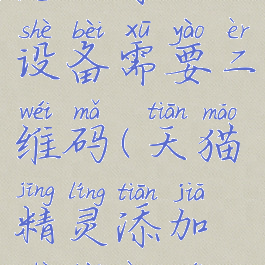 shè bèi xū yào èr
设备需要二
wéi mǎ tiān māo
维码(天猫
jīng líng tiān jiā
精灵添加